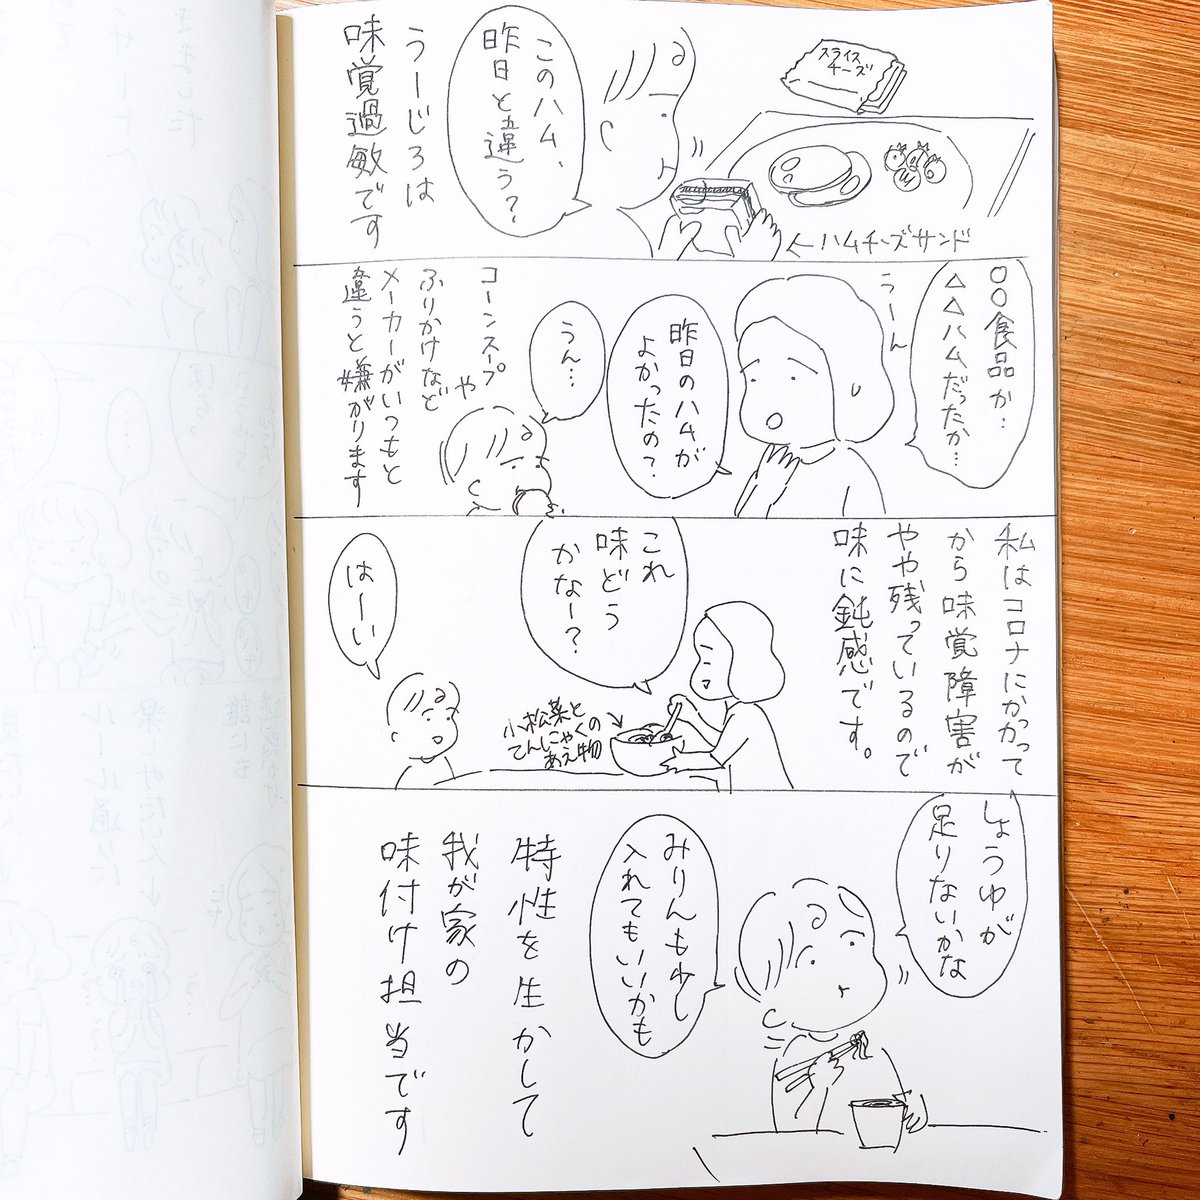 スライス
チーズ
このハム、
昨日と違う?
うーじろは
味覚過敏です
←ハムチーズサンド
〇〇食品か…
△△ハムだったか…
うーん
昨日のハムが
よかったの?
うん…
コーンスープや
ふりかけなど
メーカーがいつもと
違うと嫌がります
私はコロナにかかって
から味覚障害が
やや残っているので
味に鈍感です。
これ
味どう
かなー?
小松菜と
こんにゃくの
あえ物
はーい
しょうゆが
足りないかな
みりんも少し
入れてもいいかも
特性を生かして
我が家の
味付け担当です